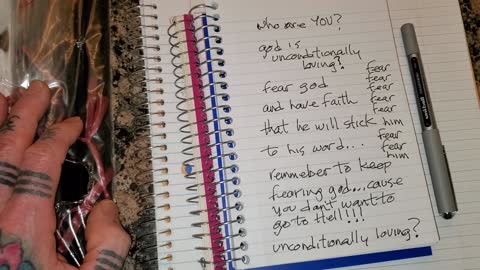 who are YOU?
god is
unconditionally
loving?
fear
fear god fear
fear
and have faith fear
fear
that he will stick him
fear
to his word... fear
him
remmeber to keep
fearing god...cause
you don't want to
go to Hell!!!
unconditionally loving?